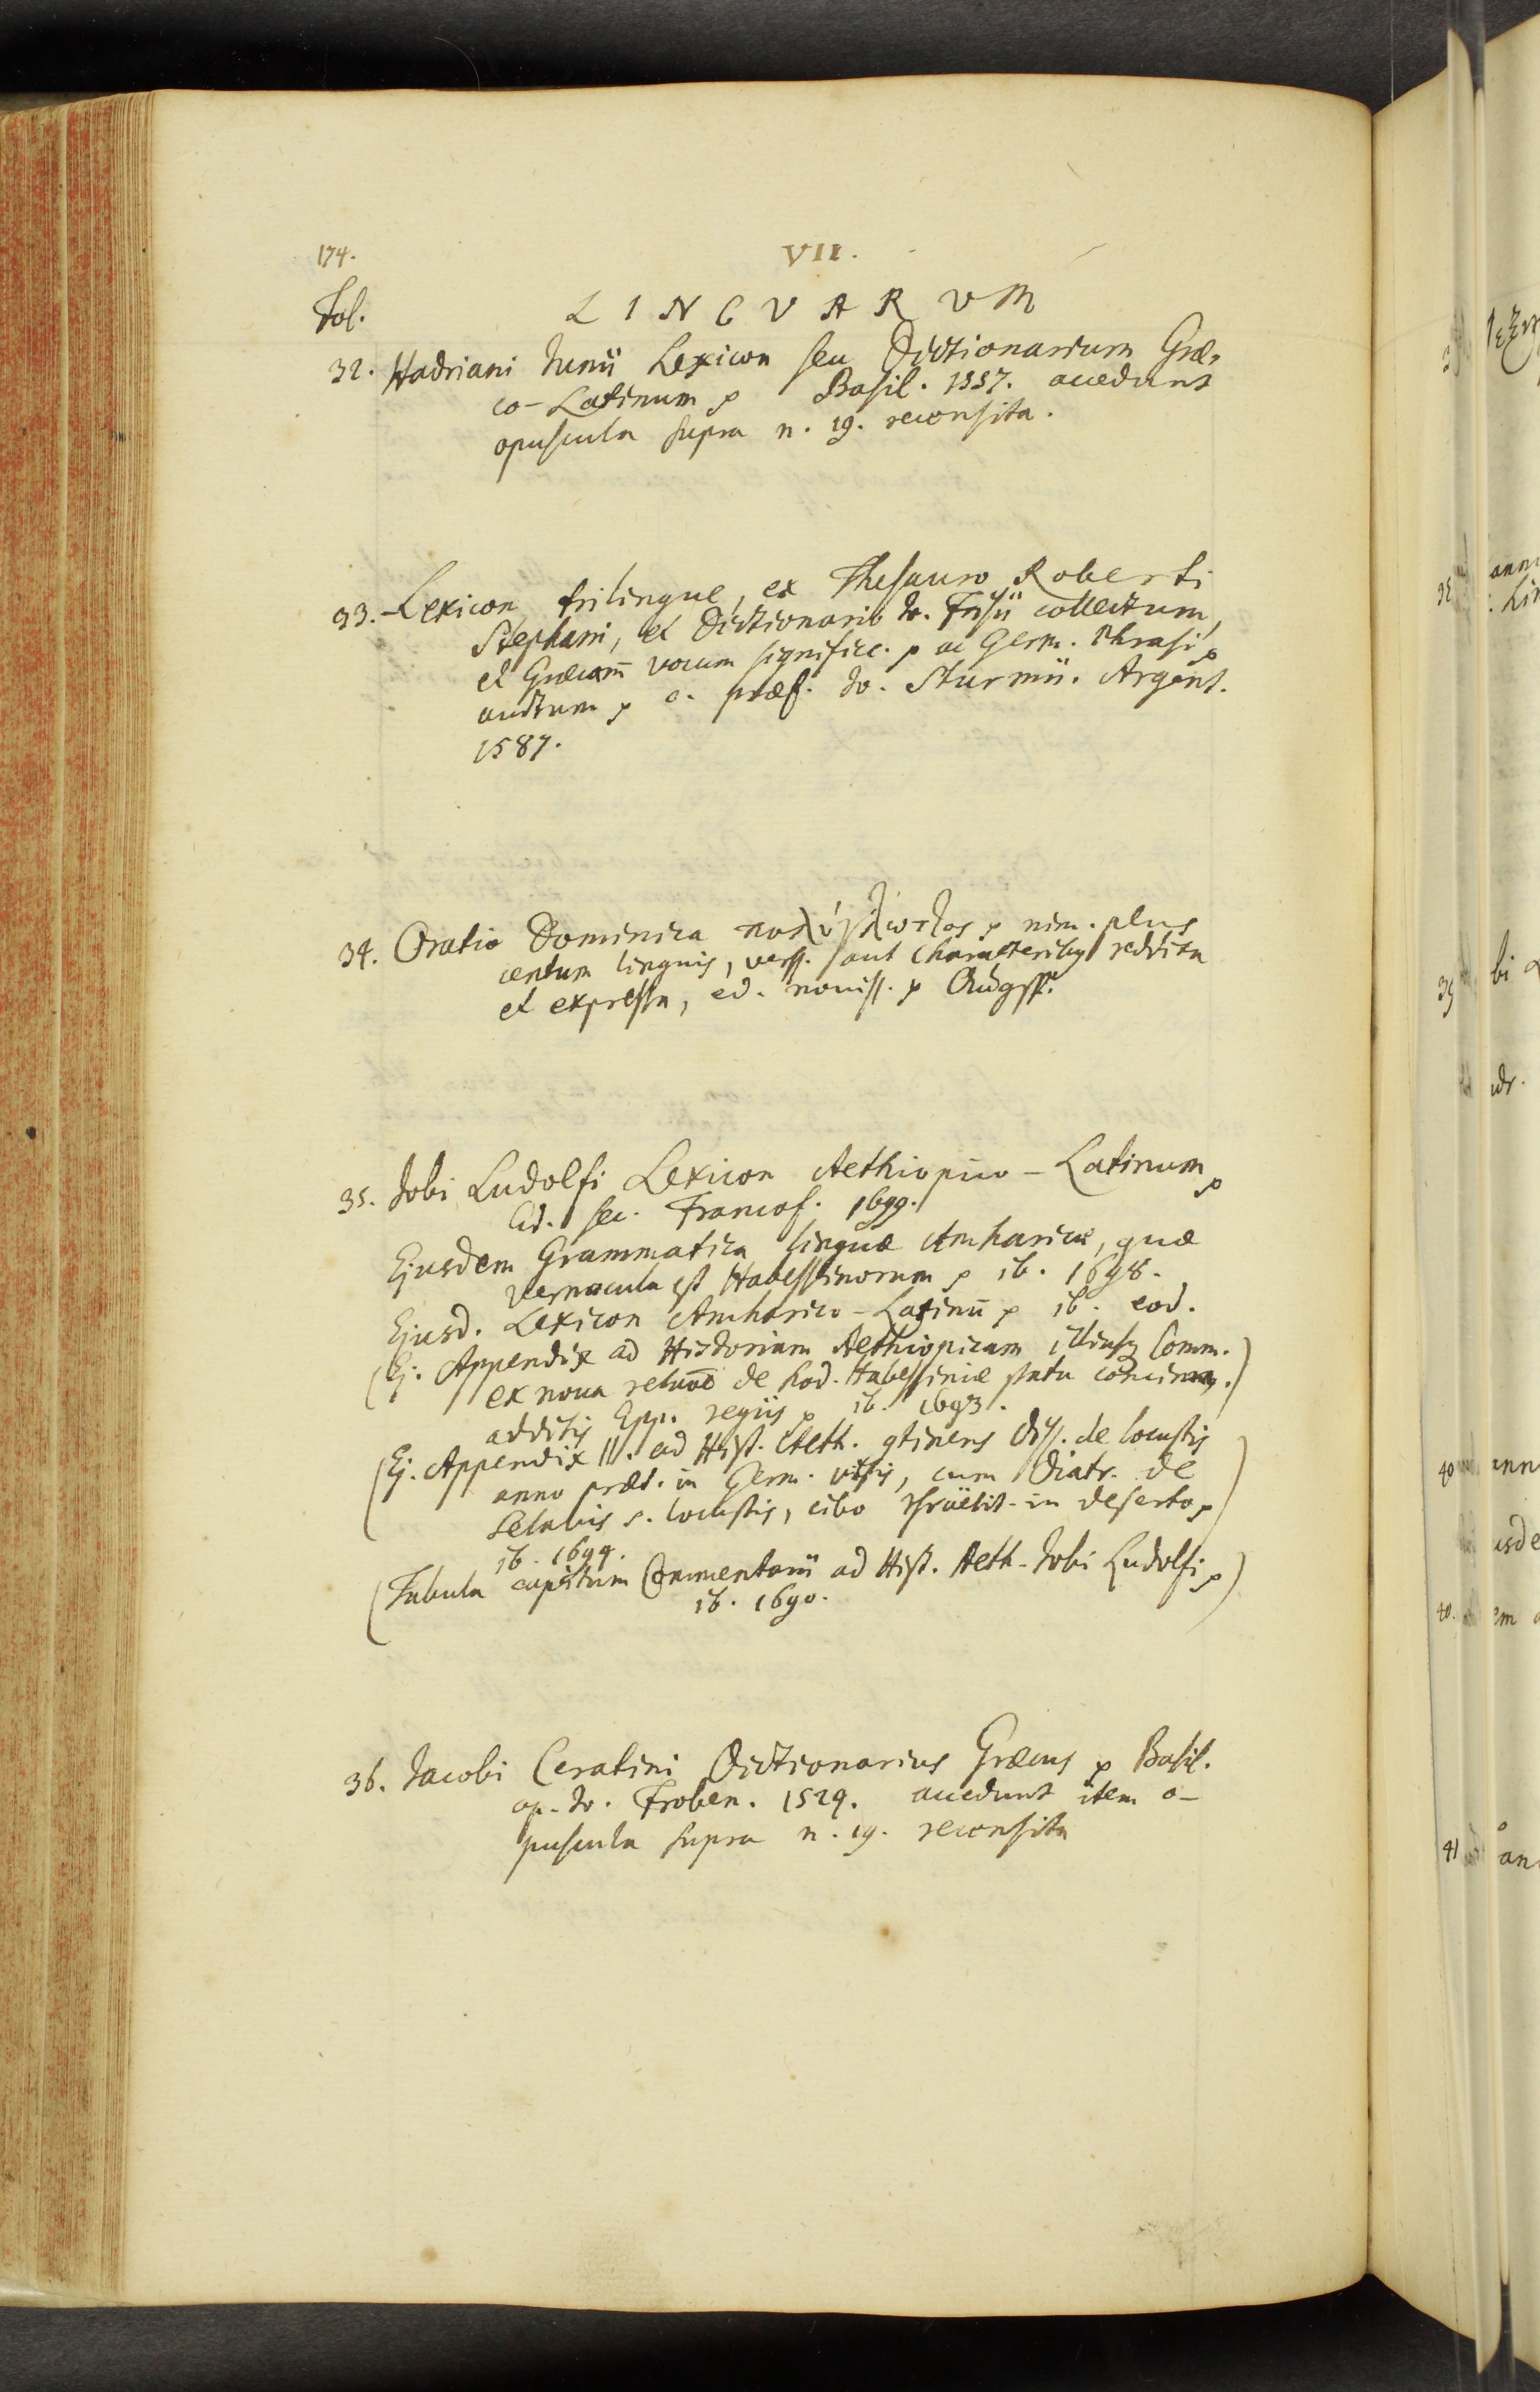 174.
VII.
Fol.
LINGVARVM
32. Hadriani Junii Lexicon seu Dictionarium Græ-
co-Latinum p Basil. 1557. accedunt
opuscula supra n. 19. recensita.
33. Lexicon trilingue, ex Thesauro Roberti
Stephani, et Dictionario Jo. Frisii collectum,
et Græcarū vocum signific. p ac Germ. Phrasi p
auctum p c. præf. Jo. Sturmii. Argent.
1587.
34. Oratio Dominica πολύγλωττος p nim. plus
centum linguis, verss. aut characteribus reddita
et expressa, ed. noviss. p Augsp.
35. Jobi Ludolfi Lexicon Aethiopico-Latinum p
Ed. sec. Francof. 1699.
Ejusdem Grammatica linguæ Amharicæ, quæ
vernacula est Habessinorum p ib. 1698.
Ejusd. Lexicon Amharico-Latinū p ib. eod.
(Ej. Appendix ad Historiam Aethiopicam illiusq Comm.)
ex nova relaōe de hod. Habessiniæ statu
additis Epp. regiis p ib. 1693.
(Ej. Appendix II. ad Hist. Aeth. 9tinens Diss. de locustis
anno præt. in Germ. visis, cum Diatr. de
Selavis s. locustis, cibo Israëlit. in deserto p
ib. 1694.
(Tabula capitum Commentarii ad Hist. Aeth. Jobi Ludolfi p)
ib. 1690.
36. Jacobi Ceratini Dictionarius Græcus p Basil.
ap. Jo. Froben. 1524. accedunt item o-
puscula supra n. 19. recensita